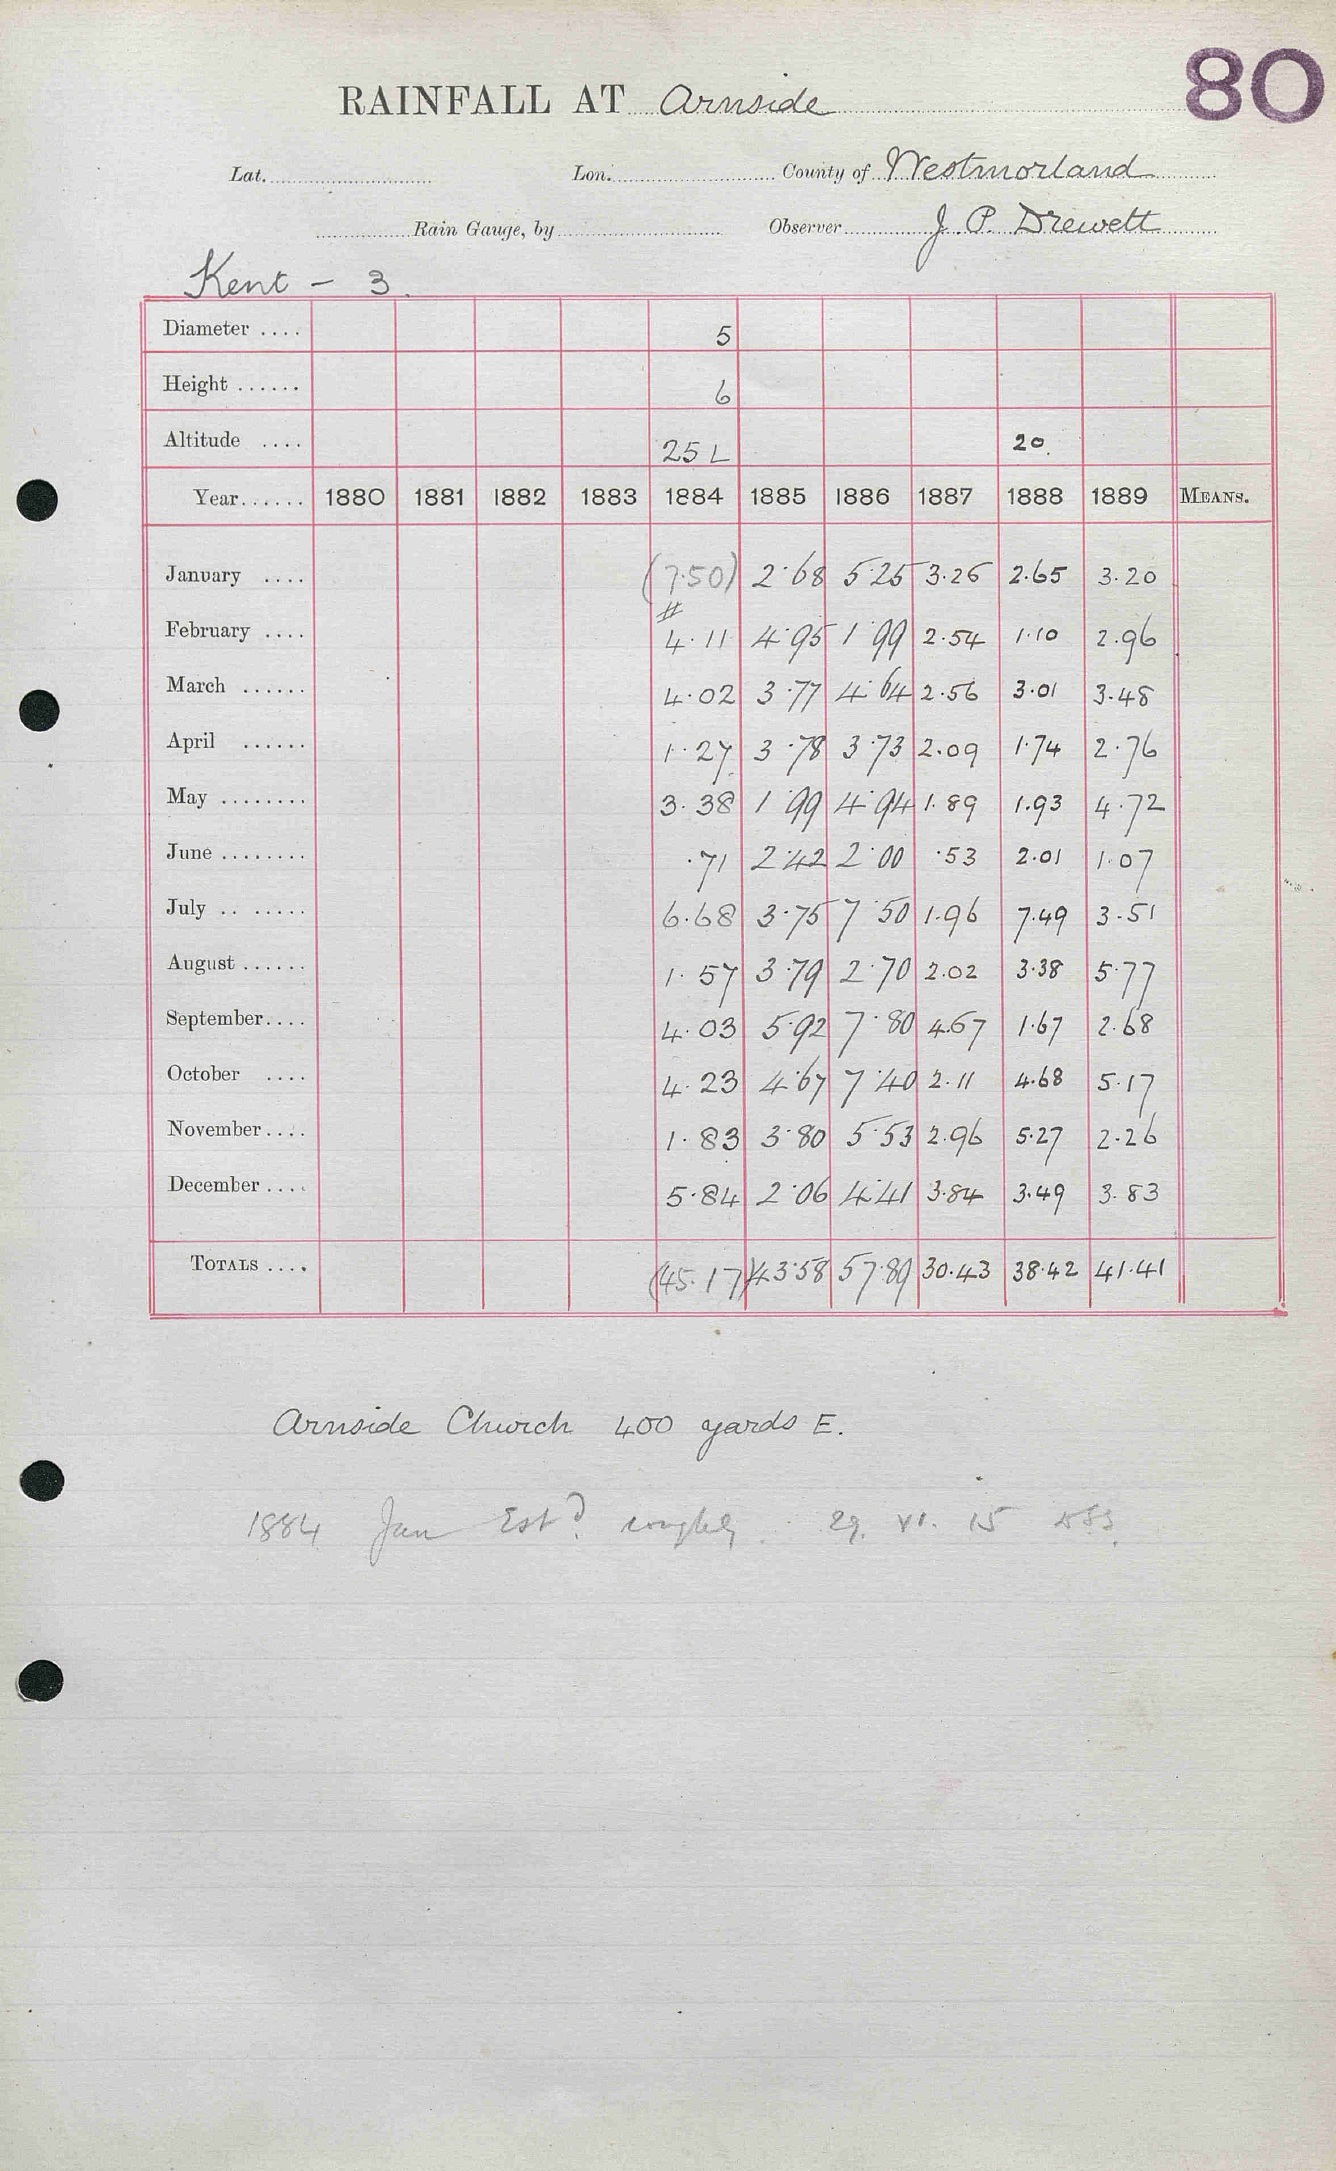 80
RAINFALL AT Arnside
Lat. Lon. County of Westmorland
Rain Gauge, by Observer J. P. Drewett
Kent – 3.
Diameter .... 5
Height ...... 6
Altitude .... 25 L 20.
Year...... 1880 1881 1882 1883 1884 1885 1886 1887 1888 1889 MEANS.
January .... (7.50) 2.68 5.25 3.26 2.65 3.20
#
February .... 4.11 4.95 1.99 2.54 1.10 2.96
March ...... 4.02 3.77 4.64 2.56 3.01 3.48
April ...... 1.27 3.78 3.73 2.09 1.74 2.76
May ........ 3.38 1.99 4.94 1.89 1.93 4.72
June ........ .71 2.42 2.00 .53 2.01 1.07
July .. ..... 6.68 3.75 7.50 1.96 7.49 3.51
August ...... 1.57 3.79 2.70 2.02 3.38 5.77
September.... 4.03 5.92 7.80 4.67 1.67 2.68
October .... 4.23 4.67 7.40 2.11 4.68 5.17
November.... 1.83 3.80 5.53 2.96 5.27 2.26
December .... 5.84 2.06 4.41 3.84 3.49 3.83
TOTALS .... (45.17) 43.58 57.89 30.43 38.42 41.41
Arnside Church 400 yards E.
1884 Jan Estd. roughly. 29. VI. 15